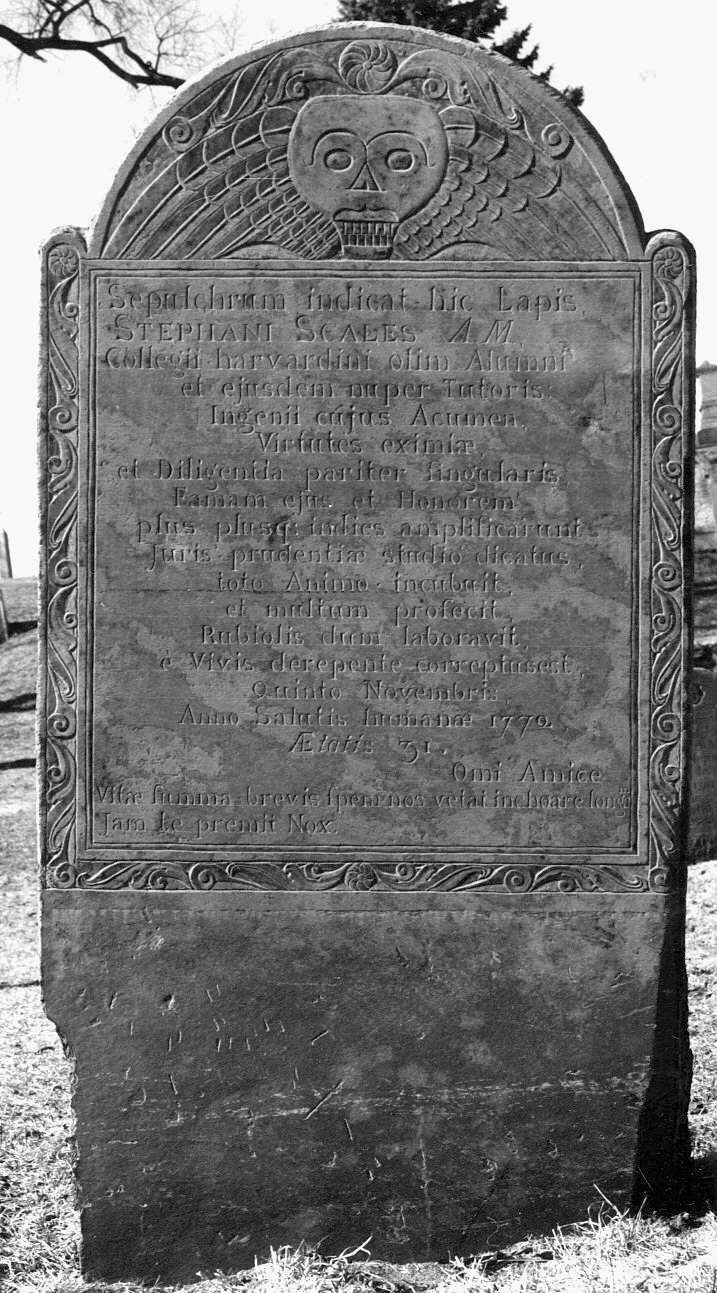 Sepulchrum indicat hic Lapis,
STEPHANI SCALES A.M,
Collegii harvardini olim Alumni
et ejusdem nuper Tutoris:
Ingenii cujus Acumen,
Virtutes eximiæ,
et Diligentia pariter ſingularis,
Famam ejus et Honorem
plus plusq; indies amplificarunt.
Juris prudentiæ studio dicatus,
toto Animo incubuit,
et multum profecit.
Rubiolis dum laboravit,
è Vivis derepente correptusest,
Quinto Novembris
Anno Salutis humanæ 1772,
Ætatis 31.
Omi Amice
Vitæ ſumma brevis ſpem nos vetat inchoare longã
Jam te premit Nox.